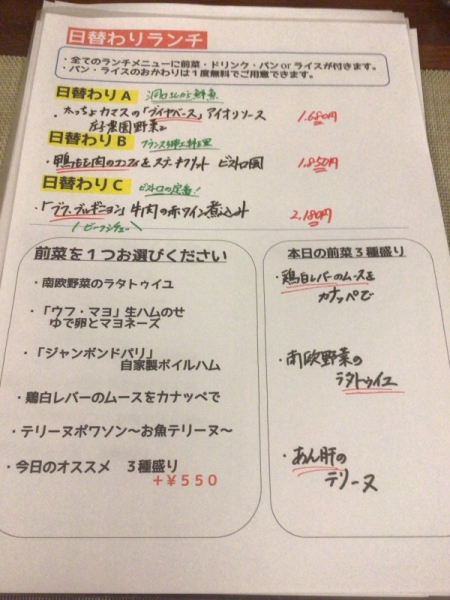 日替わりランチ
・全てのランチメニューに前菜・ドリンク・パンorライスが付きます。
・パン・ライスのおかわりは１度無料でご用意できます。
日替わりA
・太っちょカマスの「ブイヤベース」アイオリソース 1.680円
農園野菜と
日替わりB フランス郷土料理
・鴨もも肉のコンフィ&ステークフリット ビストロ風 1.850円
日替わりC ビストロの定番!
・「ブフ・ブルギニョン」牛肉の赤ワイン煮込み 2.180円
ビーフシチュー
前菜を１つお選びください
・南欧野菜のラタトゥイユ
・「ウフ・マヨ」生ハムのせ
ゆで卵とマヨネーズ
・「ジャンボンドパリ」
自家製ボイルハム
・鶏白レバーのムースをカナッペで
・テリーヌポワソン～お魚テリーヌ～
・今日のオススメ　３種盛り
＋￥５５０
本日の前菜３種盛り
・鶏白レバーのムースを
カナッペで
・南欧野菜の
ラタトゥイユ
・あん肝の
テリーヌ